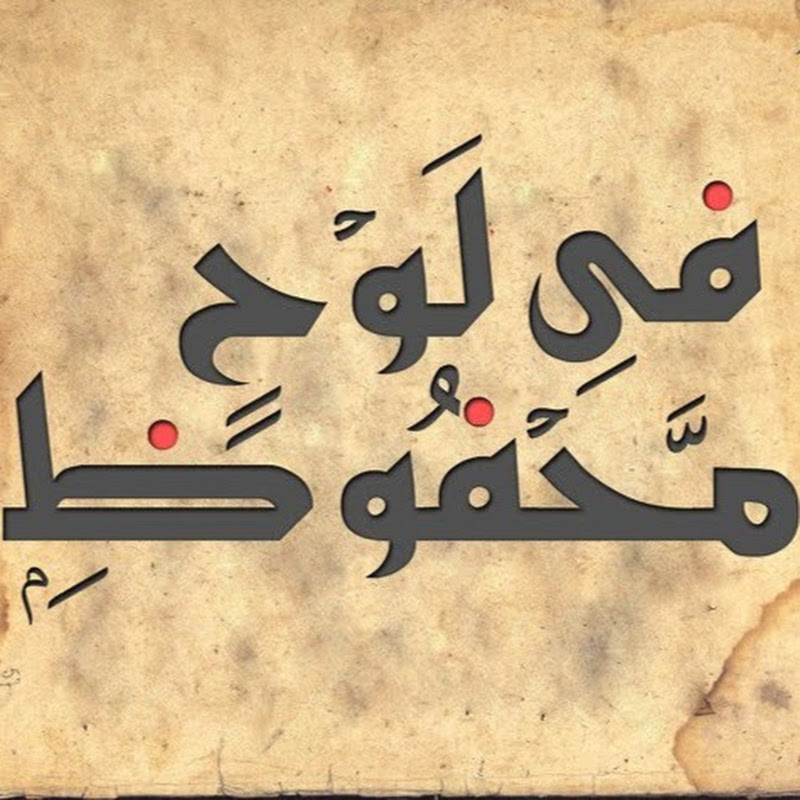 فِى لَوْحٍ
مَّحْفُوظٍۭ